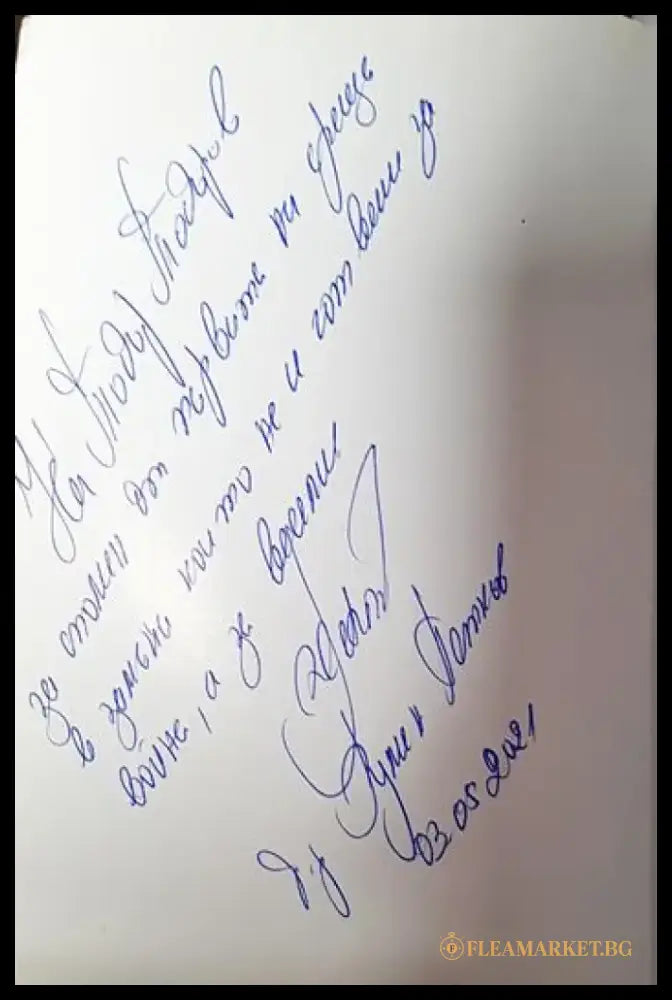 На Тодор Тодоров
за спомен от първите ни срещи
в замяна които не и готвени за
война, а за
д-р Румен Петков
03.05.2021
FLEAMARKET.BG